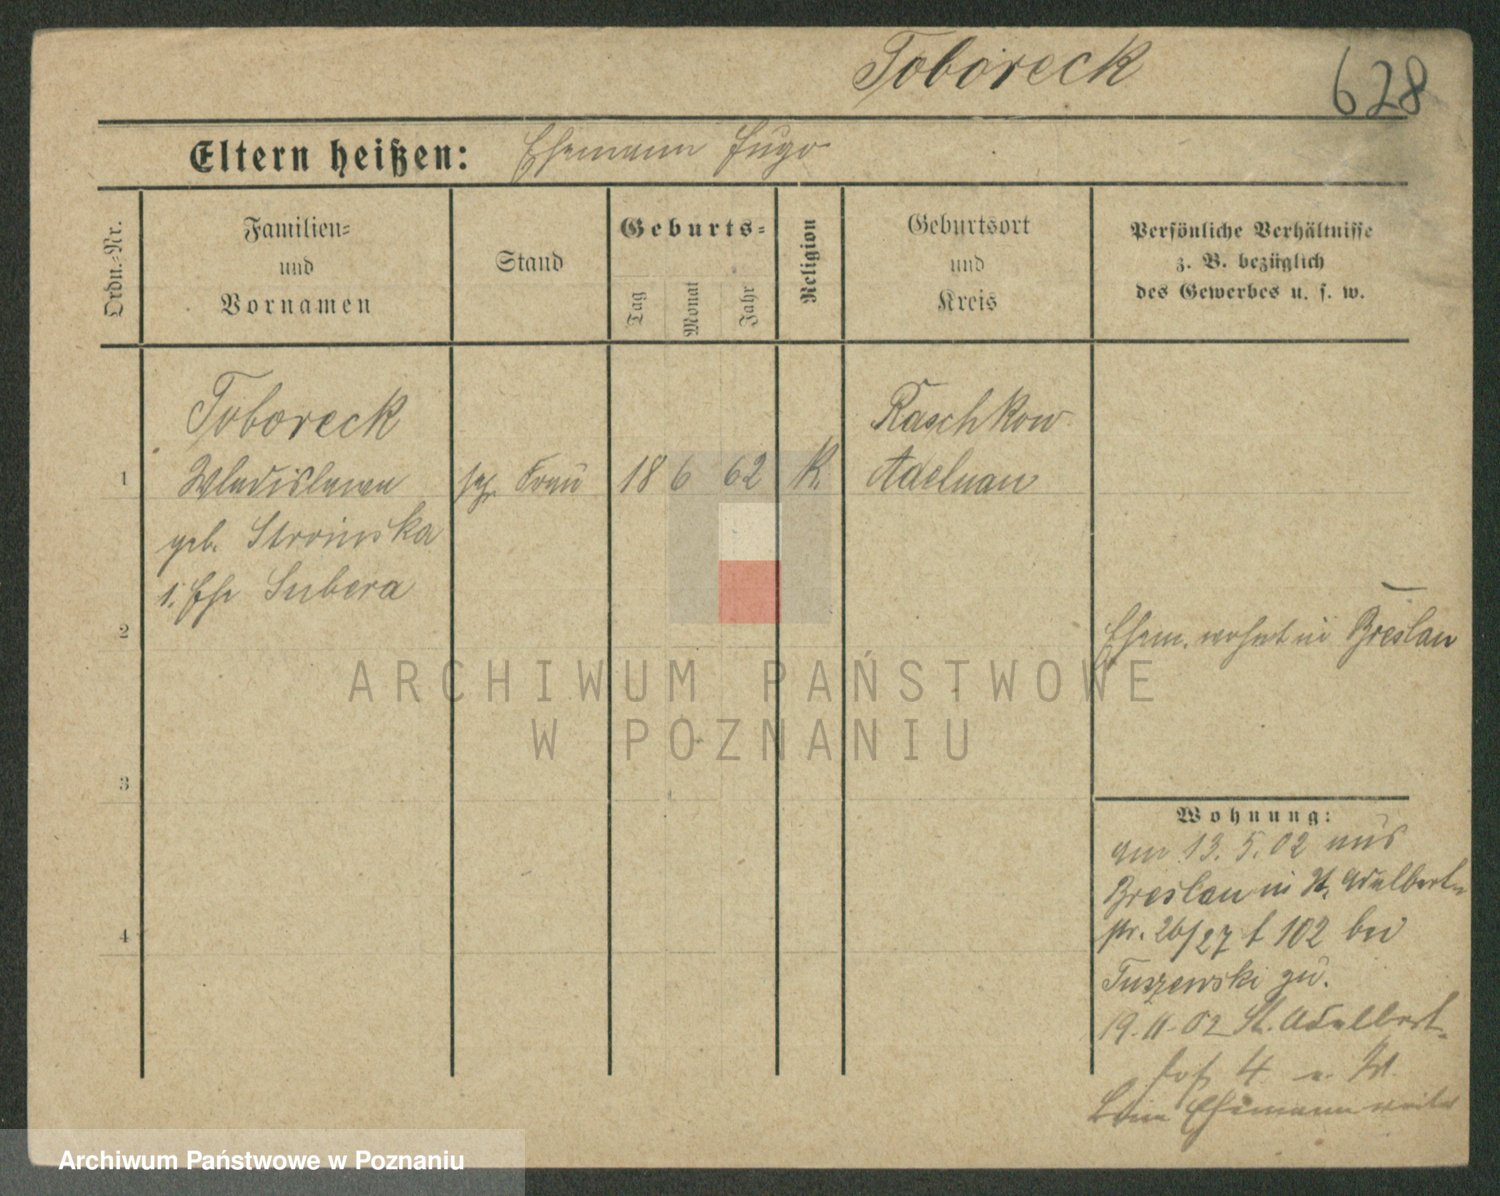 Toboreck
628
Eltern heißen: Ehemann Hugo
Ordn.-Nr.
Familien-
und
Vornamen
Stand
Geburts-
Tag
Monat
Jahr
Religion
Geburtsort
und
Kreis
Persönliche Verhältnisse
z. B. bezüglich
des Gewerbes u. s. w.
Toboreck
1 Wladislawa Frau 18 6 62 K.
geb. Stroinska
1. Ehe Subera
Raschkow
Adelnau
2
Ehem. wohnt in Breslau
3
Wohnung:
am 13. 5. 02 aus
Breslau in St. Adalbert
str. 26/27 b 102 bei
Tuszewski zu.
4
19. 11. 02 St. Adalbert-
hof 4 u. W.
beim Ehemann weiter
ARCHIWUM PAŃSTWOWE
W POZNANIU
Archiwum Państwowe w Poznaniu